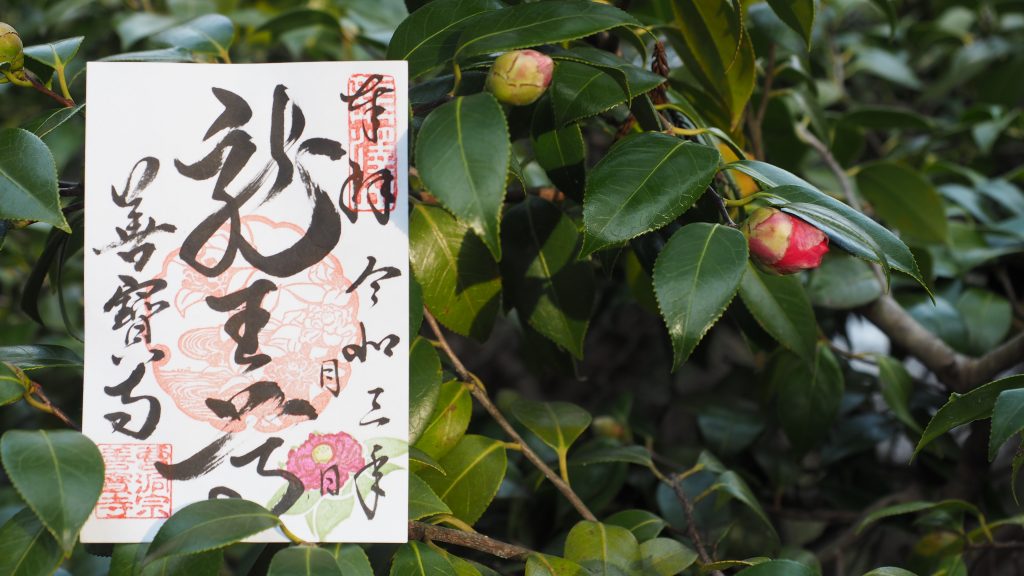 奉拝
令和三年
月 日
龍王尊
善寳寺
曹洞宗
善寳寺